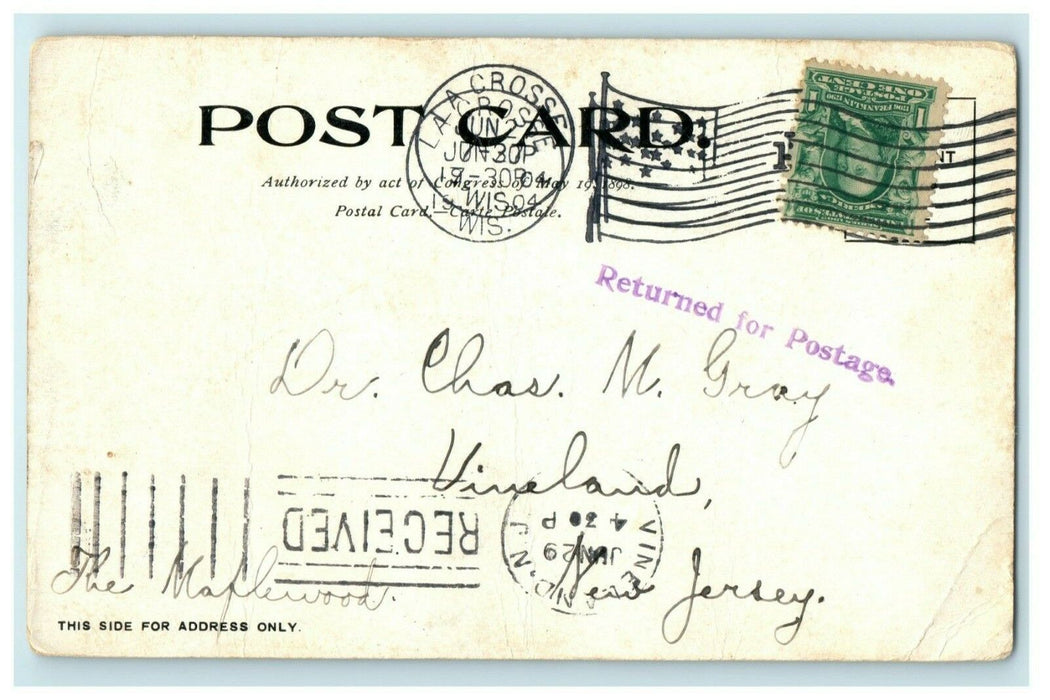 POST CARD.
Authorized by act of Congress of May 19, 1898.
Postal Card.—Carte Postale.
LA CROSSE
WIS.
ONE CENT
POSTAGE
FRANKLIN
AMERICA
NT
Returned for Postage.
Dr. Chas. M. Gray
Vineland,
New Jersey.
RECEIVED
VINELAND, N.J.
430 P
The Maplewood.
THIS SIDE FOR ADDRESS ONLY.